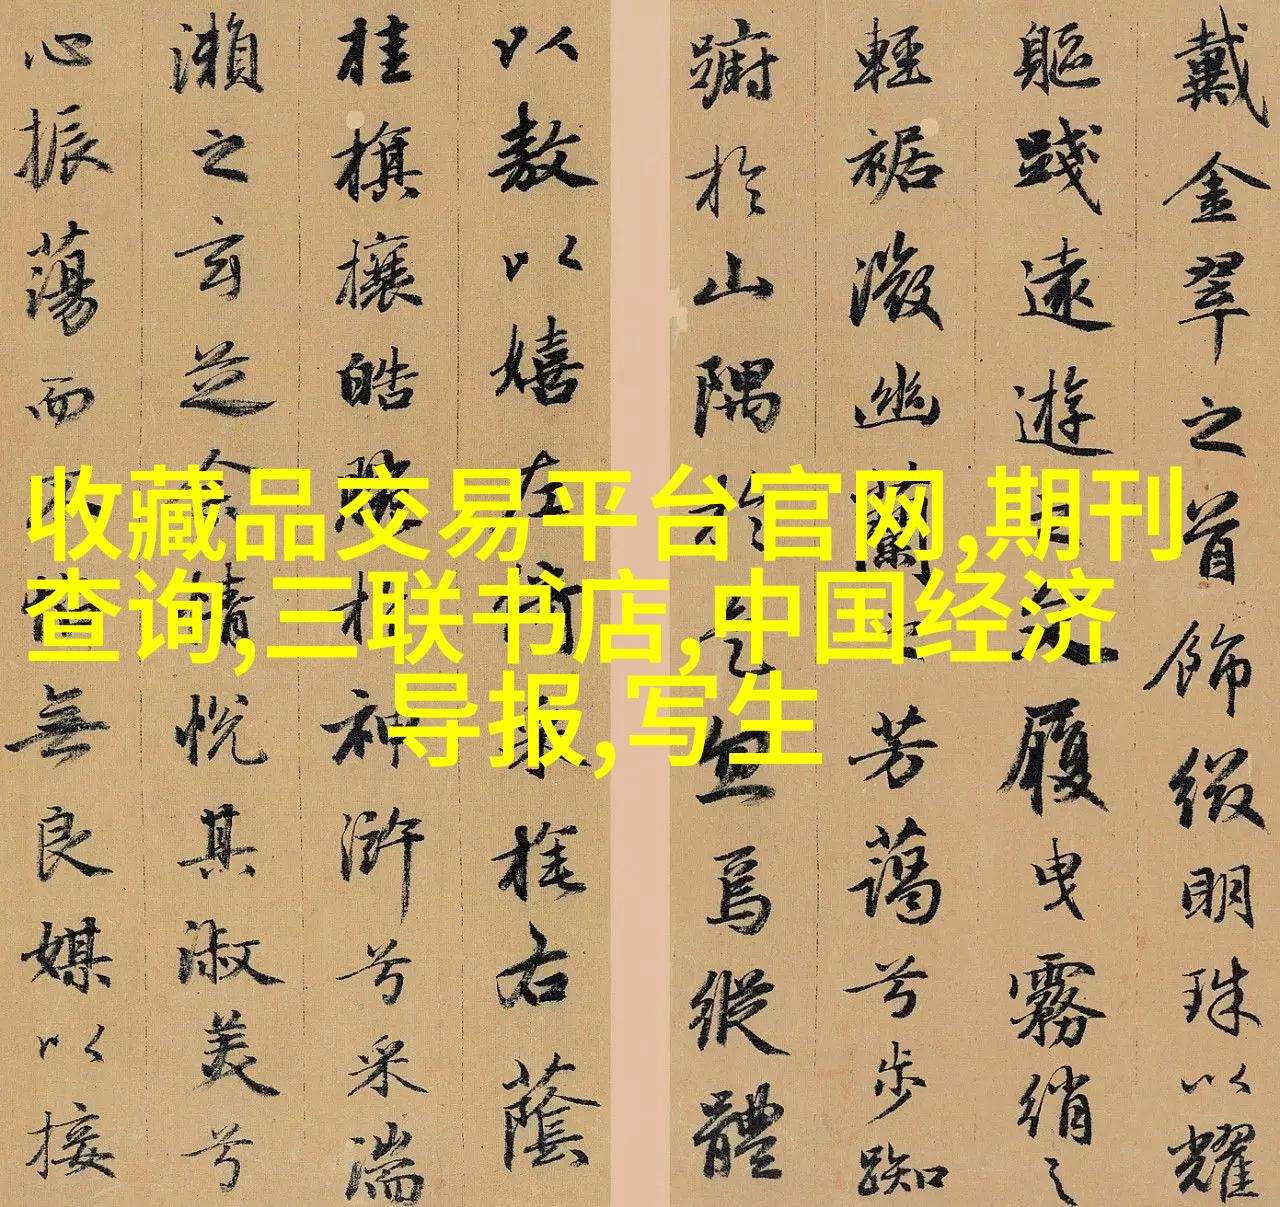 戴金翠之首飾綴明珠以耀
軀踐遠遊之文履曳霧綃之
輕裾微幽蘭之芳藹兮步踟
躕於山隅於是忽焉縱體
以敖以嬉左倚采旄右蔭
桂旗攘皓腕於神滸兮采湍
瀨之玄芝余情悅其淑美兮
心振蕩而不怡無良媒以接
收藏品交易平台官网,期刊
查询,三联书店,中国经济
导报,写生